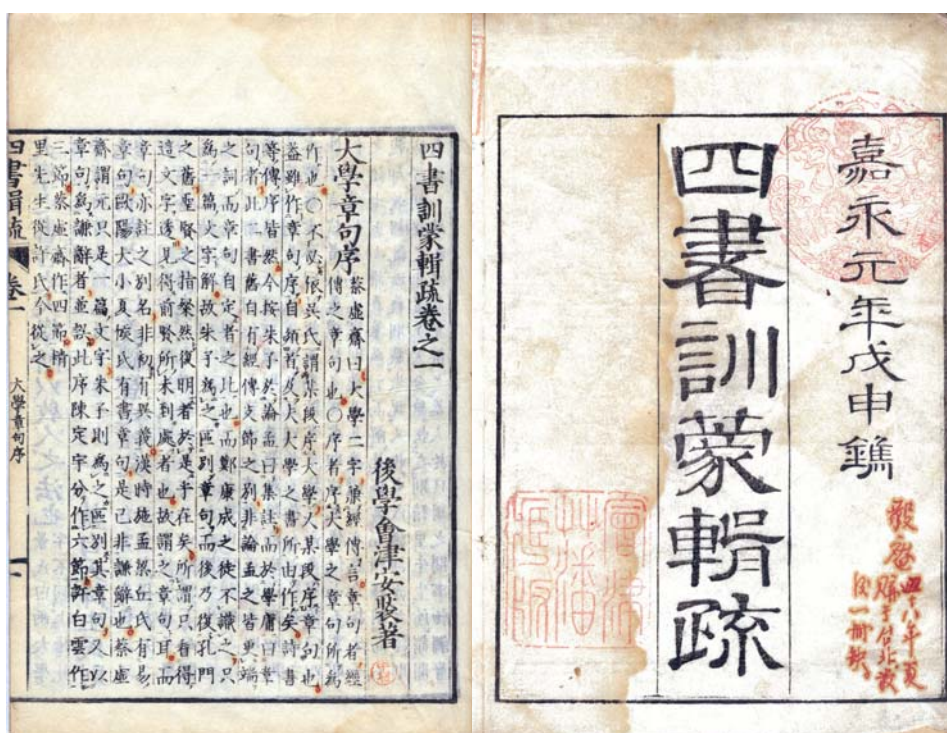 嘉永元年戊申鐫
四書訓蒙輯疏
四書訓蒙輯疏卷之一
後學會津安褧著
大學章句序
蔡虛齋曰大學二字兼經傳言章句者經
傳之章句也〇序者序大學之章句所爲
作也〇不必依吳氏謂某段序大學某段序章句也
蓋雖作章句序自須首及大學之書所由作矣詩書
等傳序皆然今按朱子於論孟曰集註而於學庸曰章
句者此二書舊自有經傳支節之別非論孟之皆更端
之訓而章句自定者之比也而鄭康成之徒不識之只
爲一篇文字解故朱子爲之區別章句而後乃復孔門
之舊聖賢之指粲然復明者於是乎在矣所謂只看得
這文字透見得前賢所未到處者也故謂之章句耳而
章句亦註之別名非初有異義漢時施孟梁丘氏有易
章句歐陽大小夏侯氏有書章句是已非謙辭也蔡虛
齋謂元只是一篇文字朱子則爲之區別其章句又以
章句爲謙辭者並設此序陳定宇分作六節許白雲作
三節蔡虛齋作四節精
里先生從許氏今從之
四書輯疏
卷一
大學章句序
一